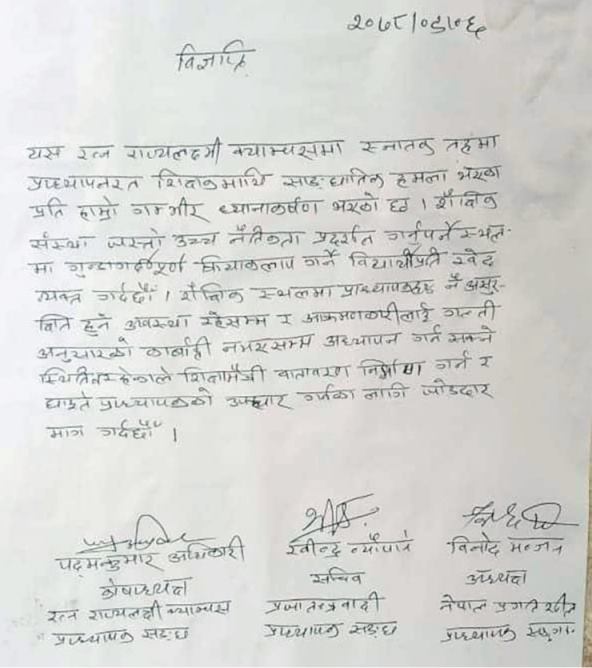 २०७८/०८/०६
विज्ञप्ति
यस रत्न राज्यलक्ष्मी क्याम्पसमा स्नातक तहमा
प्राध्यापनरत शिक्षकमाथि साङ्घातिक हमला भएको
प्रति हाम्रो गम्भीर ध्यानाकर्षण भएको छ । शैक्षिक
संस्था जस्तो उच्च नैतिकता प्रदर्शन गर्नुपर्ने स्थल-
मा गुन्डागर्दीपूर्ण क्रियाकलाप गर्ने विद्यार्थीप्रति खेद
व्यक्त गर्दछौँ । शैक्षिक स्थलमा प्राध्यापकहरू नै असुर-
क्षित हुने अवस्था रहेसम्म र आक्रमणकारीलाई गल्ती
अनुसारको कार्बाही नभएसम्म अध्यापन गर्न सक्ने
स्थिति नरहेकाले शिक्षामैत्री वातावरण निर्माण गर्न र
घाइते प्राध्यापकको उपचार गर्नका लागि जोडदार
माग गर्दछौँ ।
पद्मकुमार अधिकारी रवीन्द्र न्यौपाने विनोद
कोषाध्यक्ष सचिव अध्यक्ष
रत्न राज्यलक्ष्मी क्याम्पस प्रजातन्त्रवादी नेपाल प्रगतिशील
प्राध्यापक सङ्घ प्राध्यापक सङ्घ प्राध्यापक